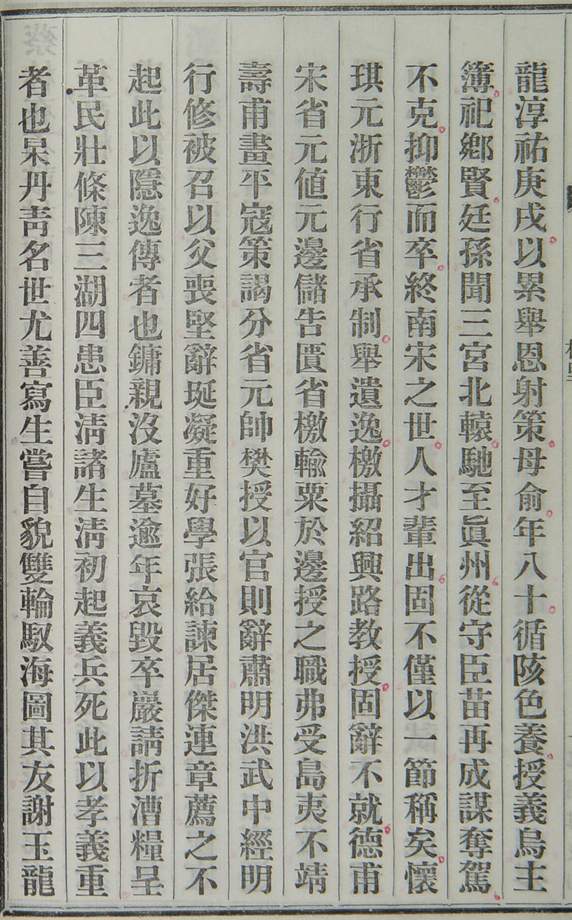 龍淳祐庚戌以累舉恩射策母俞年八十循陔色養授義烏主
簿祀鄉賢廷孫聞三宮北轅馳至眞州從守臣苗再成謀奪駕
不克抑鬱而卒終南宋之世人才輩出固不僅以一節稱矣懷
琪元浙東行省承制舉遺逸檄攝紹興路教授固辭不就德甫
宋省元値元邊儲告匱省檄輸粟於邊授之職弗受島夷不靖
壽甫畫平寇策謁分省元帥樊授以官則辭肅明洪武中經明
行修被召以父喪堅辭埏凝重好學張給諫居傑連章薦之不
起此以隱逸傳者也鏞親沒廬墓逾年哀毀卒嚴請折漕糧呈
革民壯條陳三湖四患臣淸諸生淸初起義兵死此以孝義重
者也杲丹靑名世尤善寫生嘗自貌雙輪馭海圖其友謝玉龍